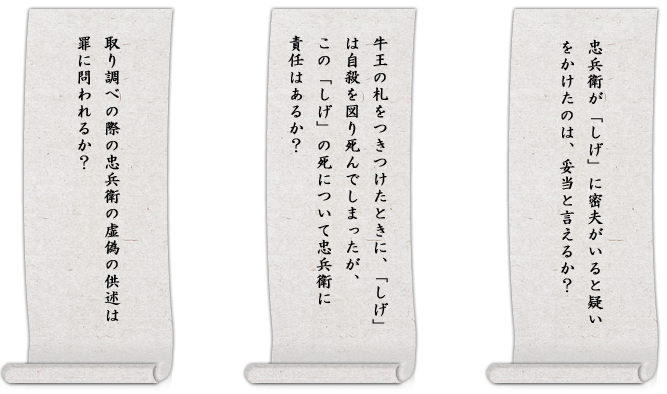 忠兵衛が「しげ」に密夫がいると疑い
をかけたのは、妥当と言えるか？
牛王の札をつきつけたときに、「しげ」
は自殺を図り死んでしまったが、
この「しげ」の死について忠兵衛に
責任はあるか？
取り調べの際の忠兵衛の虚偽の供述は
罪に問われるか？